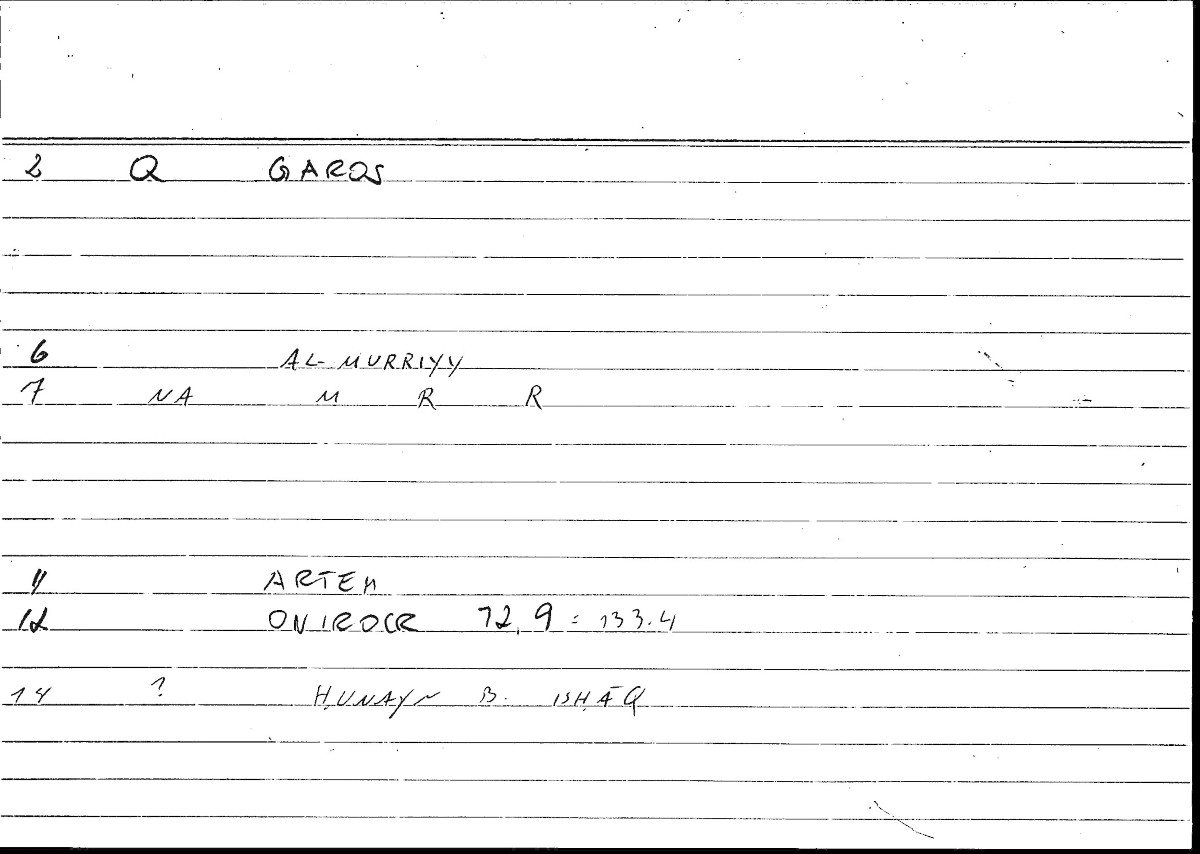 2 Q GAROS
6 AL-MURRIYY
7 NA M R R
11 ARTEM
12 ONIROCR 72,9 = 133.4
14 ? ḤUNAYN B. ISḤĀQ